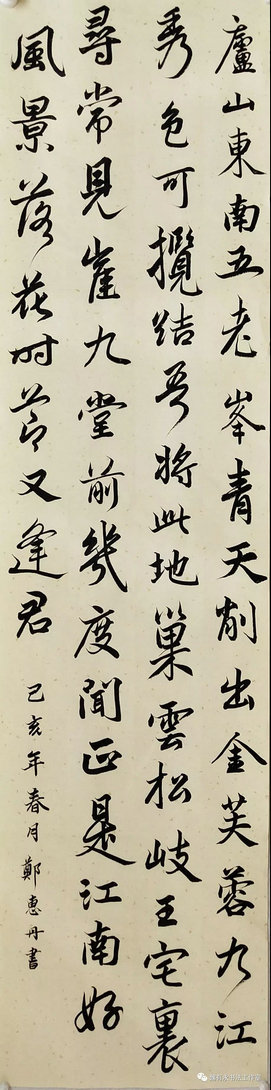 廬山東南五老峯青天削出金芙蓉九江
秀色可攬結吾將此地巢雲松岐王宅裏
尋常見崔九堂前幾度聞正是江南好
風景落花時節又逢君
己亥年春月鄭惠丹書